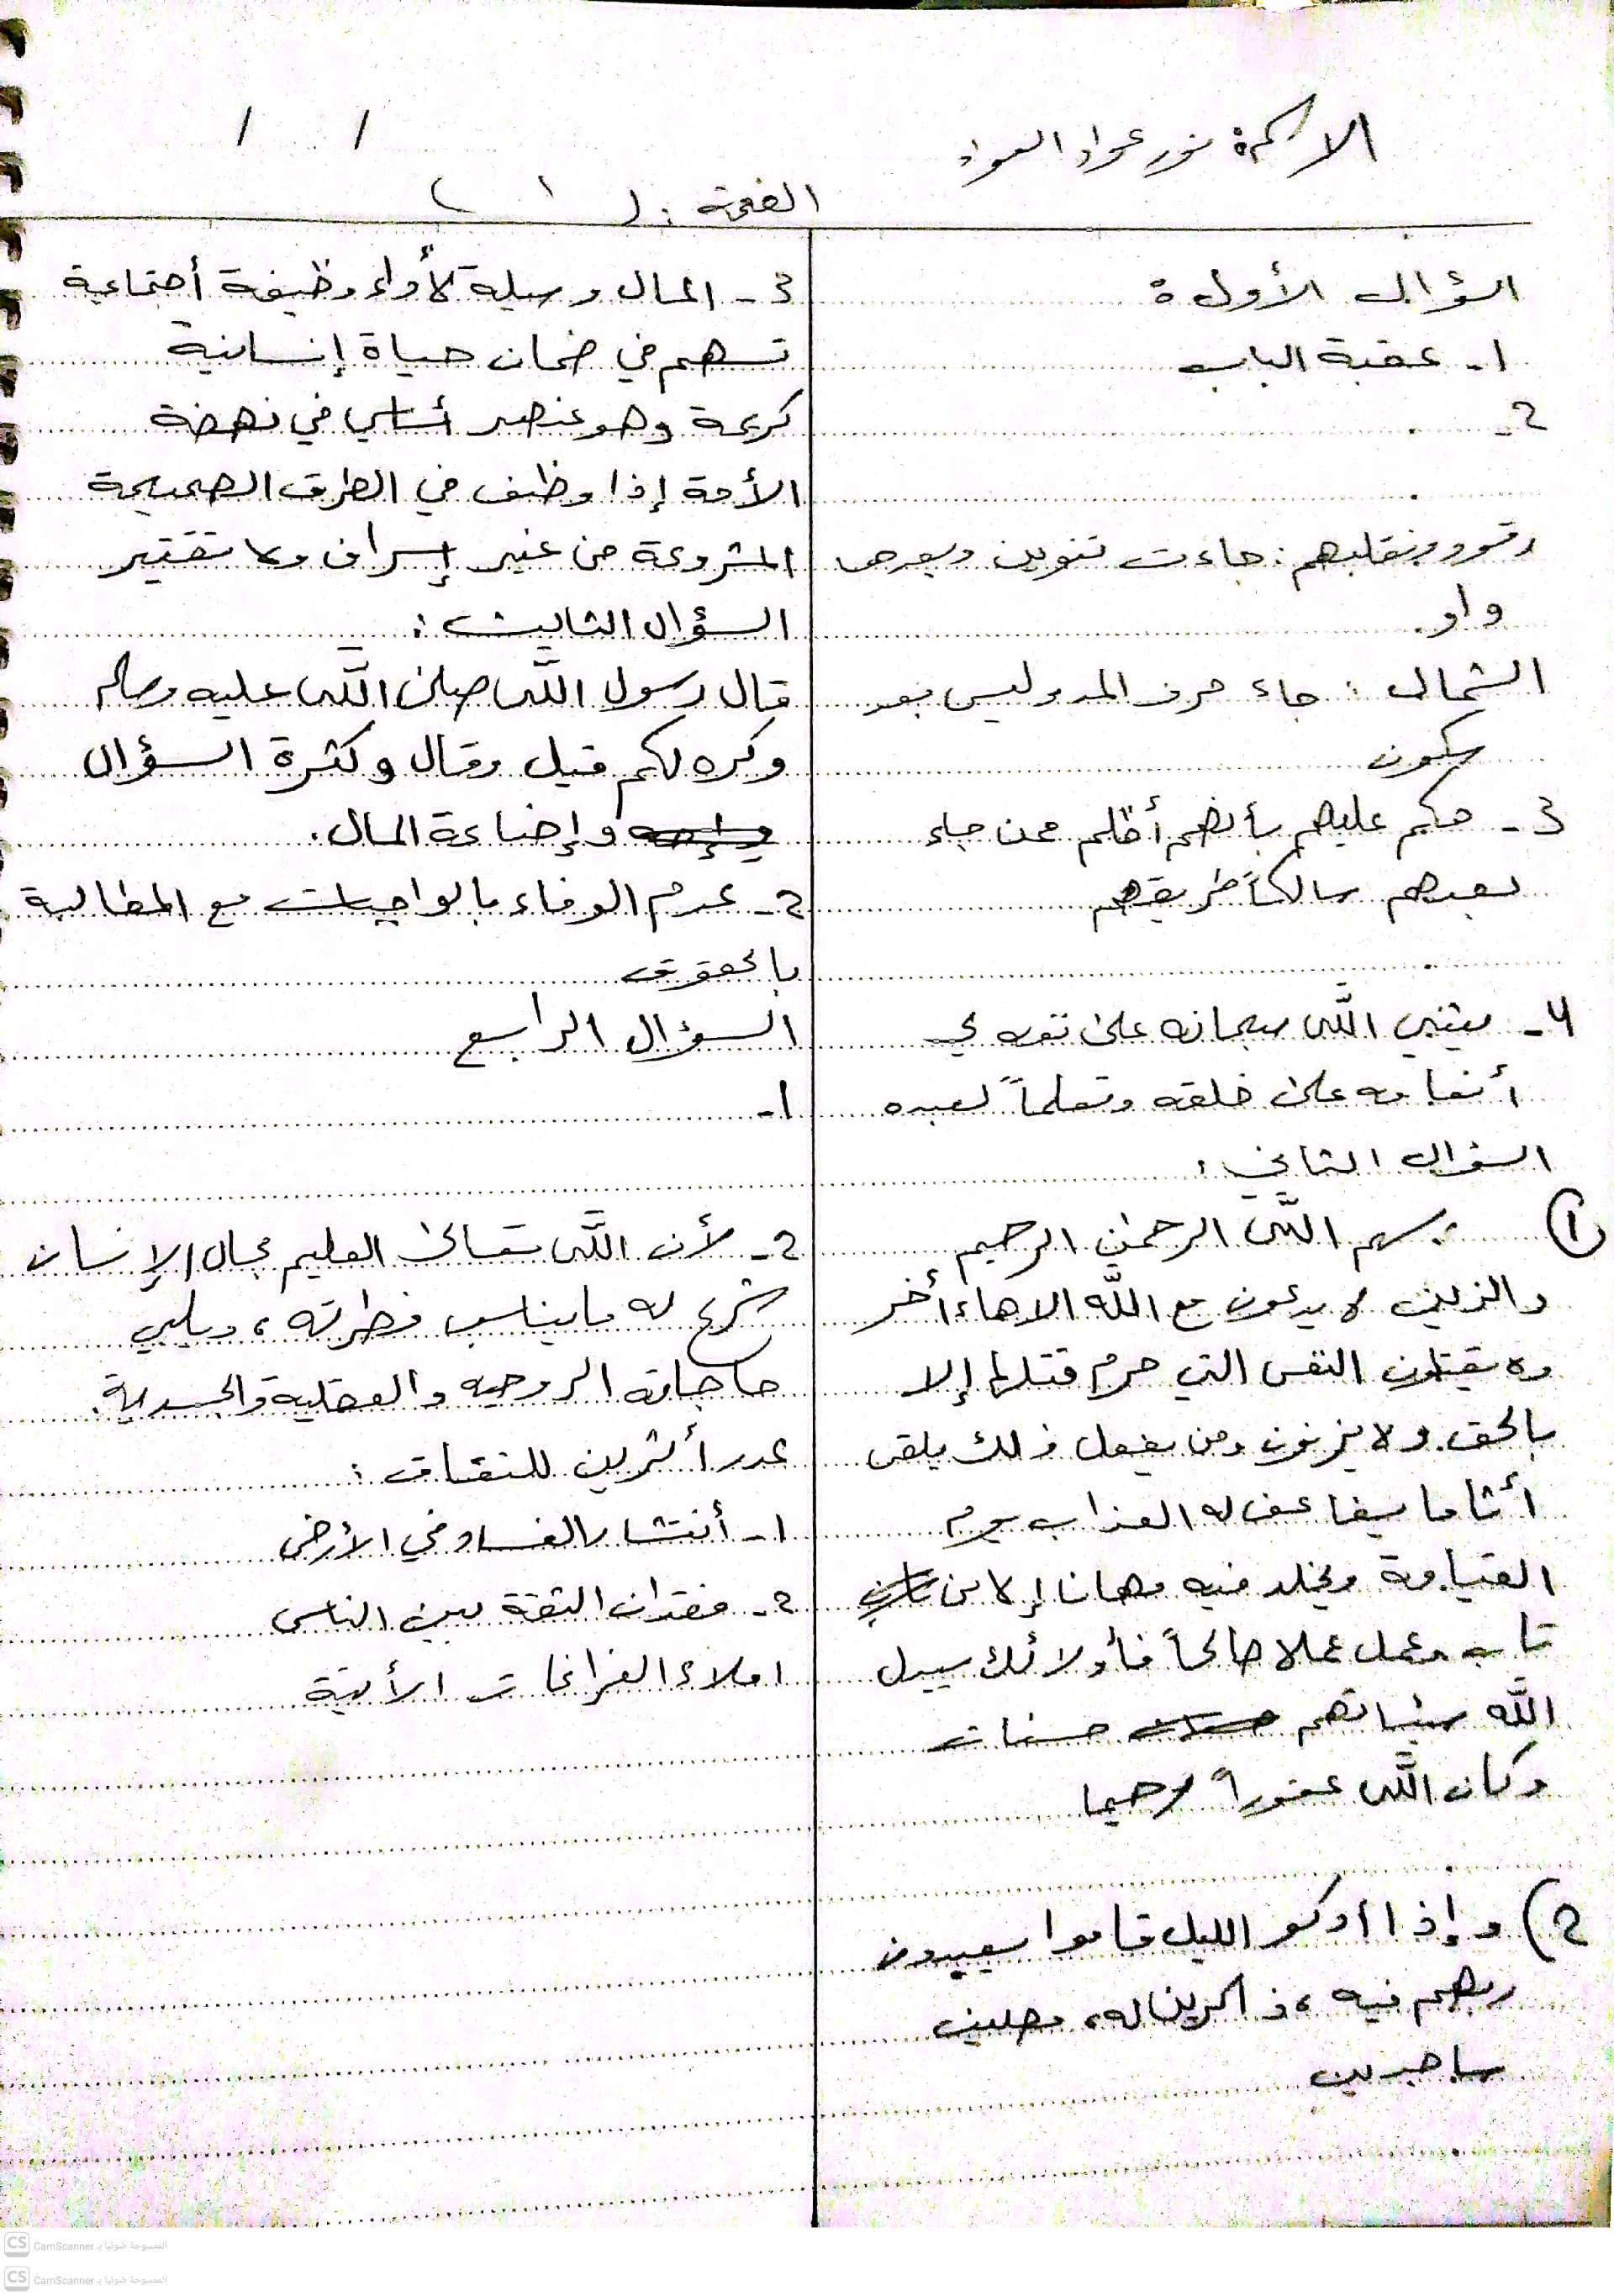 / /
الاسم: نور عواد العواد
الفئة: ( ١ )
السؤال الأول:
1- عقبة الباب
2-
رقود ونقلبهم: جاءت تنوين وبعدها
واو.
الشمال: جاء حرف المد وليس بعد
سكون
3- حكم عليهم بأنهم أظلم ممن جاء
بعدهم سالكاً طريقهم
4- يثني الله سبحانه على
أنعامه على خلقه وتعلماً لعبده
السؤال الثاني:
1 بسم الله الرحمن الرحيم
والذين لا يدعون مع الله الاهاء أخر
ولا يقتلون النفس التي حرم قتلها إلا
بالحق ولا يزنون ومن يفعل ذلك يلقى
أثاما يضاعف له العذاب يوم
القيامة ويخلد فيه مهانا إلا من
تاب وعمل عملا صالحاً فأولائك يبدل
الله سيئاتهم حسنات
وكان الله غفوراً رحيما
2) وإذا أدركهم الليل قاموا يعبدون
ربهم فيه، ذاكرين له، مصلين
ساجدين
3- المال وسيلة لأداء وظيفة أجتماعية
تسهم في ضمان حياة إنسانية
كريمة وهو عنصر أساسي في نهضة
الأمة إذا وظف في الطرق الصحيحة
المشروعة من غير إسراف ولا تقتير
السؤال الثالث:
قال رسول الله صلى الله عليه وسلم
وكره لكم قيل وقال وكثرة السؤال
وإضاعة المال.
2- عدم الوفاء بالواجبات مع المطالبة
بالحقوق
السؤال الرابع
1-
2- لأن الله تعالى العليم بحال الإنسان
شرع له ما يناسب فطرته، ويلبي
حاجاته الروحيه والعقلية والجسدية.
عدد أثرين للنفاق:
1- أنتشار الفساد في الأرض
2- فقدان الثقة بين الناس
املاء الفراغات الأتية
المسوحة ضوئيا بـ CamScanner
المسوحة ضوئيا بـ CamScanner